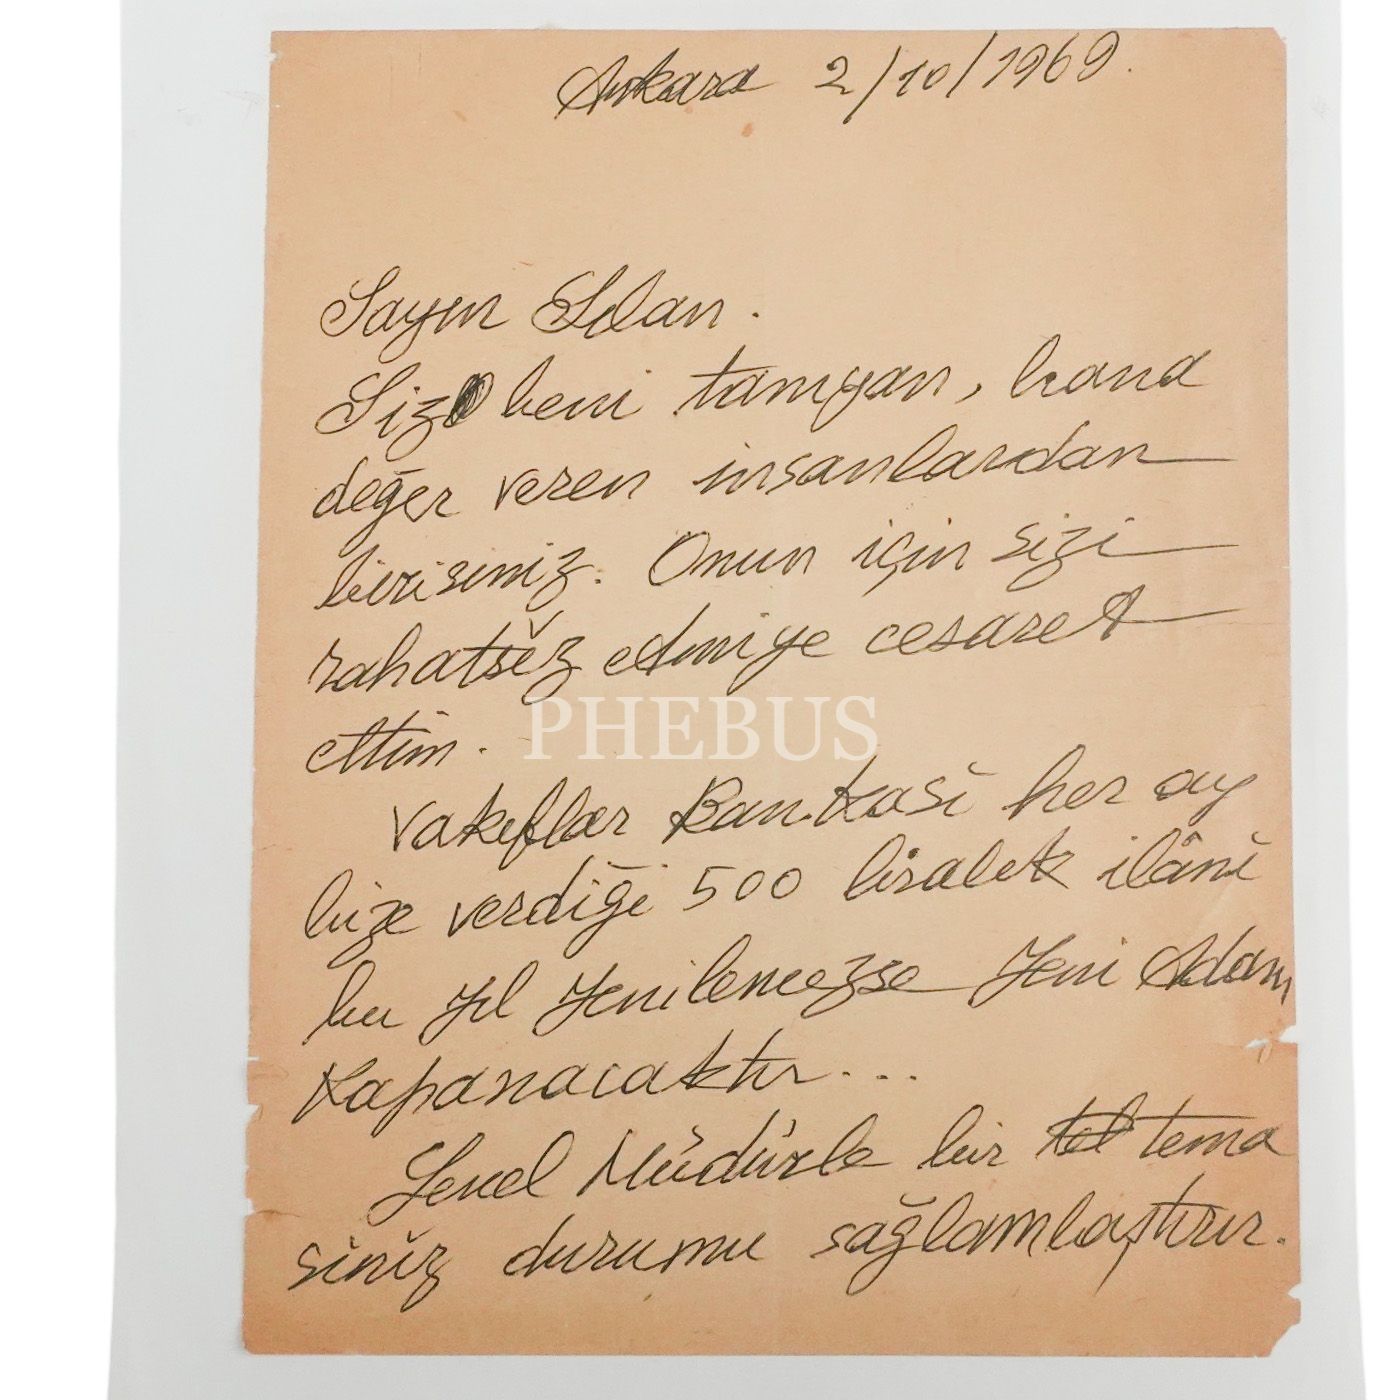 Ankara 2/10/1969.
Sayın
Siz beni tanıyan, bana
değer veren insanlardan
birisiniz. Onun için sizi
rahatsız etmiye cesaret
ettim.
PHEBUS
Vakıflar Bankası her ay
bize verdiği 500 liralık ilânı
bu yıl yenilemezse Yeni Adam
kapanacaktır...
Genel Müdürle bir tel tema
siniz durumu sağlamlaştırır.